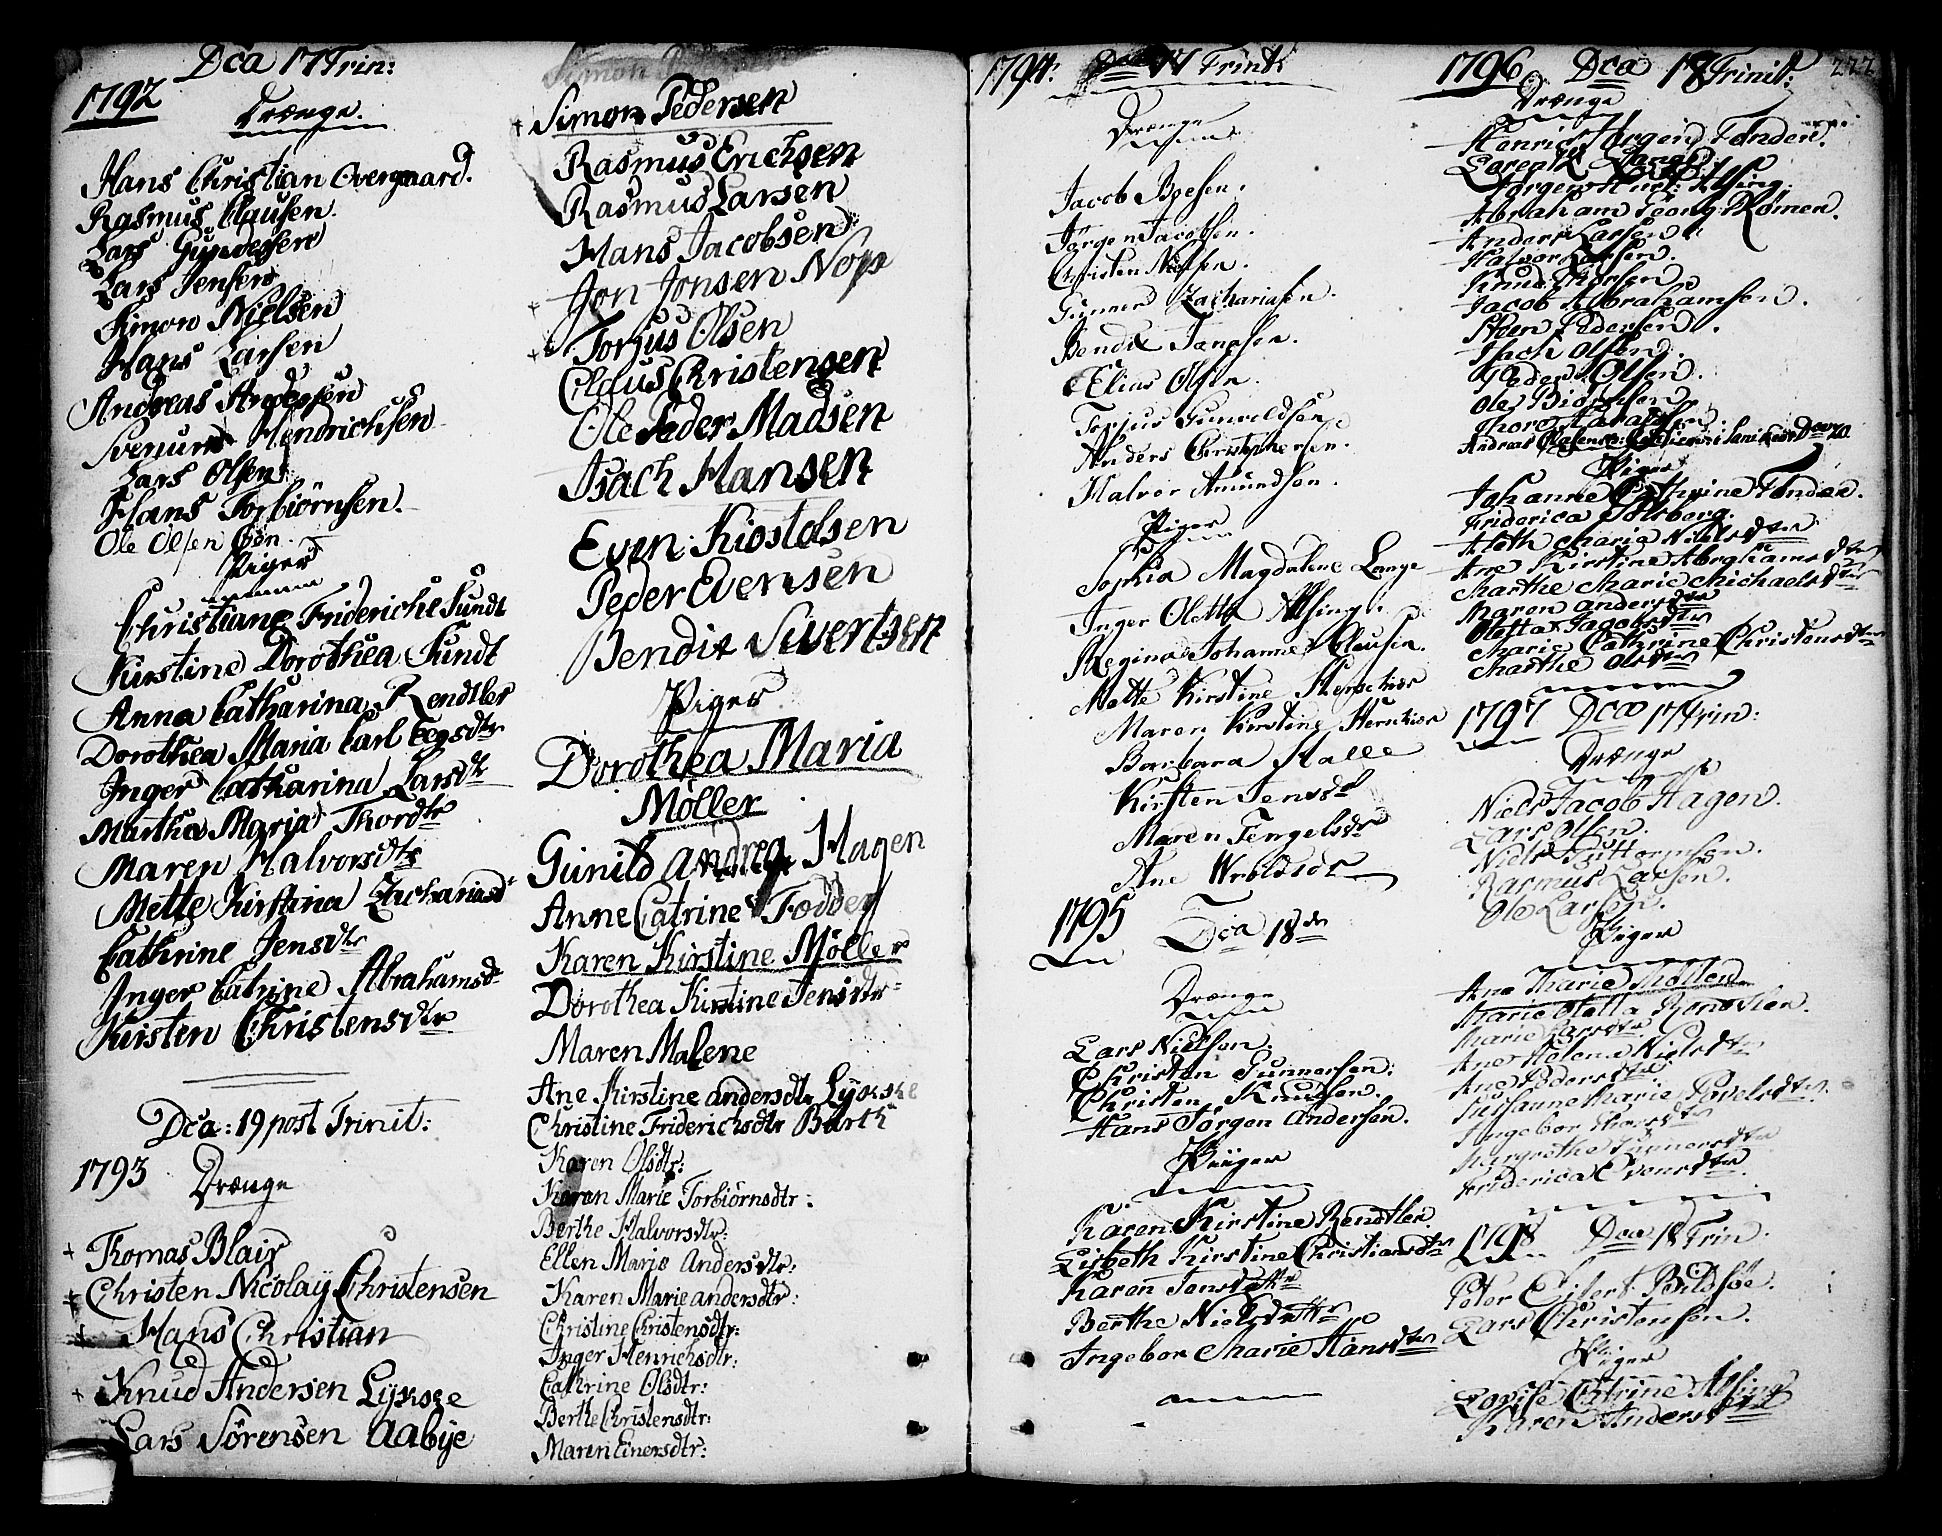 1792 Dca 17 Trin:
Drænge.
Hans Christian Overgaard.
Rasmus Clausen.
Lars Gundersen
Lars Jensen
Simon Nielsen
Hans Larsen
Andreas Andersen
Svenum Hendrichsen
Lars Olsen
Hans Torbiörnsen.
Ole Olsen
Piger
Christiane Frideriche Sundt
Kirstine Dorothea Sundt
Anna Catharina Rendtler
Dorothea Maria Carl Eegsdtr
Inger Catharina Larsdtr
Martha Maria Thordtr
Maren Halvorsdtr
Mette Kirstina Zachariasd
Cathrine Jensdtr
Inger Catrine Abrahamsd
Kirsten Christensdtr
Dca: 19 post Trinit:
1793 Drænge
+ Thomas Blair
+ Christen Nicolaÿ Christensen
+ Hans Christian
+ Knud Andersen Lÿkke
Lars Sörensen Aabÿe
+ Simon Pedersen
Rasmus Erichsen
Rasmus Larsen
Hans Jacobsen
+ Jon Jonsen Nop
+ Torjus Olsen
Claus Christensen
Ole Peder Madsen
Isach Hansen
Even Kiostolsen
Peder Evensen
Bendix Sivertsen
Piger
Dorothea Maria
Möller
Gunild Andrea Hagen
Anne Catrine Fodder
Karen Kirstine Möller
Dorothea Kirstine Jensdtr
Maren Malene
Ane Kirstine andersdtr Lÿkke
Christine Friderichsdtr Barth
Karen Olsdtr:
Karen Marie Torbiörnsdtr:
Berthe Halvorsdtr:
Ellen Maris Andersdtr:
Karen Marie andersdtr:
Christine Christensdtr:
Inger Henrichsdtr:
Cathrine Olsdtr:
Berthe Christensdtr:
Maren Einersdtr:
1794: Dca 17 Trinit
Drænge
Jacob Boesen.
Jörgen Jacobsen.
Christen Nielsen.
Gunner Zachariasen.
Bendix Jansen.
Elias Olsen
Torjus Gunveldsen
Anders Christphersen.
Halvor Amundsen.
Piger
Sophia Magdalene Lange
Inger Oletta Alsing.
Regina Johanne Clausen.
Mette Kirstine
Maren Kirstine
Barbara Kalle
Kirsten Jensdtr
Maren Tengelsdtr
Ane Wroldsdtr
1795 Dca 18de
Drænge
Lars Nielsen.
Christen Gunnersen:
Christen Knudsen.
Hans Jörgen Andersen.
Piiger
Karen Kirstine Rendtler.
Lisbeth Kirstine Christiansdtr
Karen Jensdtr
Berthe Nielsdtr
Ingebor Marie Hansdtr
1796 Dca 18 Trinit: 222
Drænge
Henric Jörgen Tonden.
Lorentz Lange
Jörgen Alsing.
Abraham Georg Römen.
Anders Larsen
Halvor Larsen.
Knud Thorsen
Jacob Abrahamsen.
Sten Pedersen.
Isach Olsen.
Peder Olsen.
Ole Biörnsen
Thore Haraldsen.
Andreas
Piger
Johanne Cathrine Tonden.
Friderica Solberg.
Aleth Maria Nielsdtr
Ane Kirstine Abrahamsdtr
Marthe Marie Michaelsdtr
Karen andersdtr
Oletta Jacobsdtr
Marie Cathrine Christensdtr
Marthe Olsdtr
1797 Dca 17 Trin:
Drænge
Niels Jacob Hagen.
Lars Olsen.
Niels Guttormsen.
Rasmus Larsen.
Ole Larsen.
Piger
Ane Marie Möller
Marie Oletta Rendtler.
Marie Larsdtr
Ane Helene Nielsdtr
Ane Pedersdtr
Susanne Marie Povelsdtr
Ingebor Thorsdtr
Margrethe Gunnersdtr
Friderica Evensdtr
1798 Dca 18 Trin.
Peter Eilert Bildsöe.
Lars Christensen.
Piger
Lovise Catrine Alsing
Karen Andersdtr